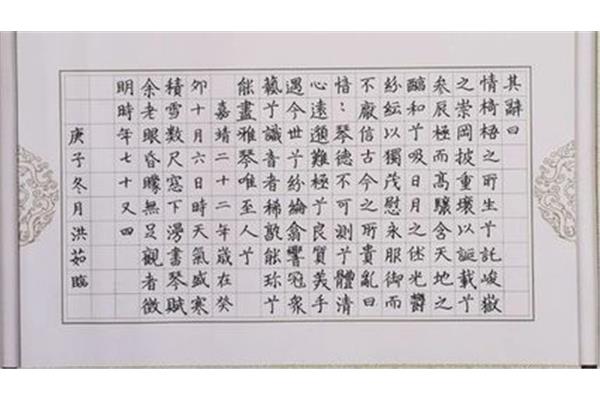 其辭曰
情椅梧之所生兮託峻嶽
之崇岡披重壤以誕載兮
叅辰極而高驤含天地之
醇和兮吸日月之休光鬱
紛紜以獨茂慰永服御而
不厭信古今之所貴亂曰
愔〻琴德不可測兮體清
心遠邈難極兮良質美手
遇今世兮紛綸翕響冠衆
藝兮識音者稀孰能珍兮
能盡雅琴唯至人兮
嘉靖二十二年歲在癸
卯十月六日時天氣盛寒
積雪數尺窓下漫書琴賦
余老眼昏矇無足觀者徵
明時年七十又四
庚子冬月洪茹臨